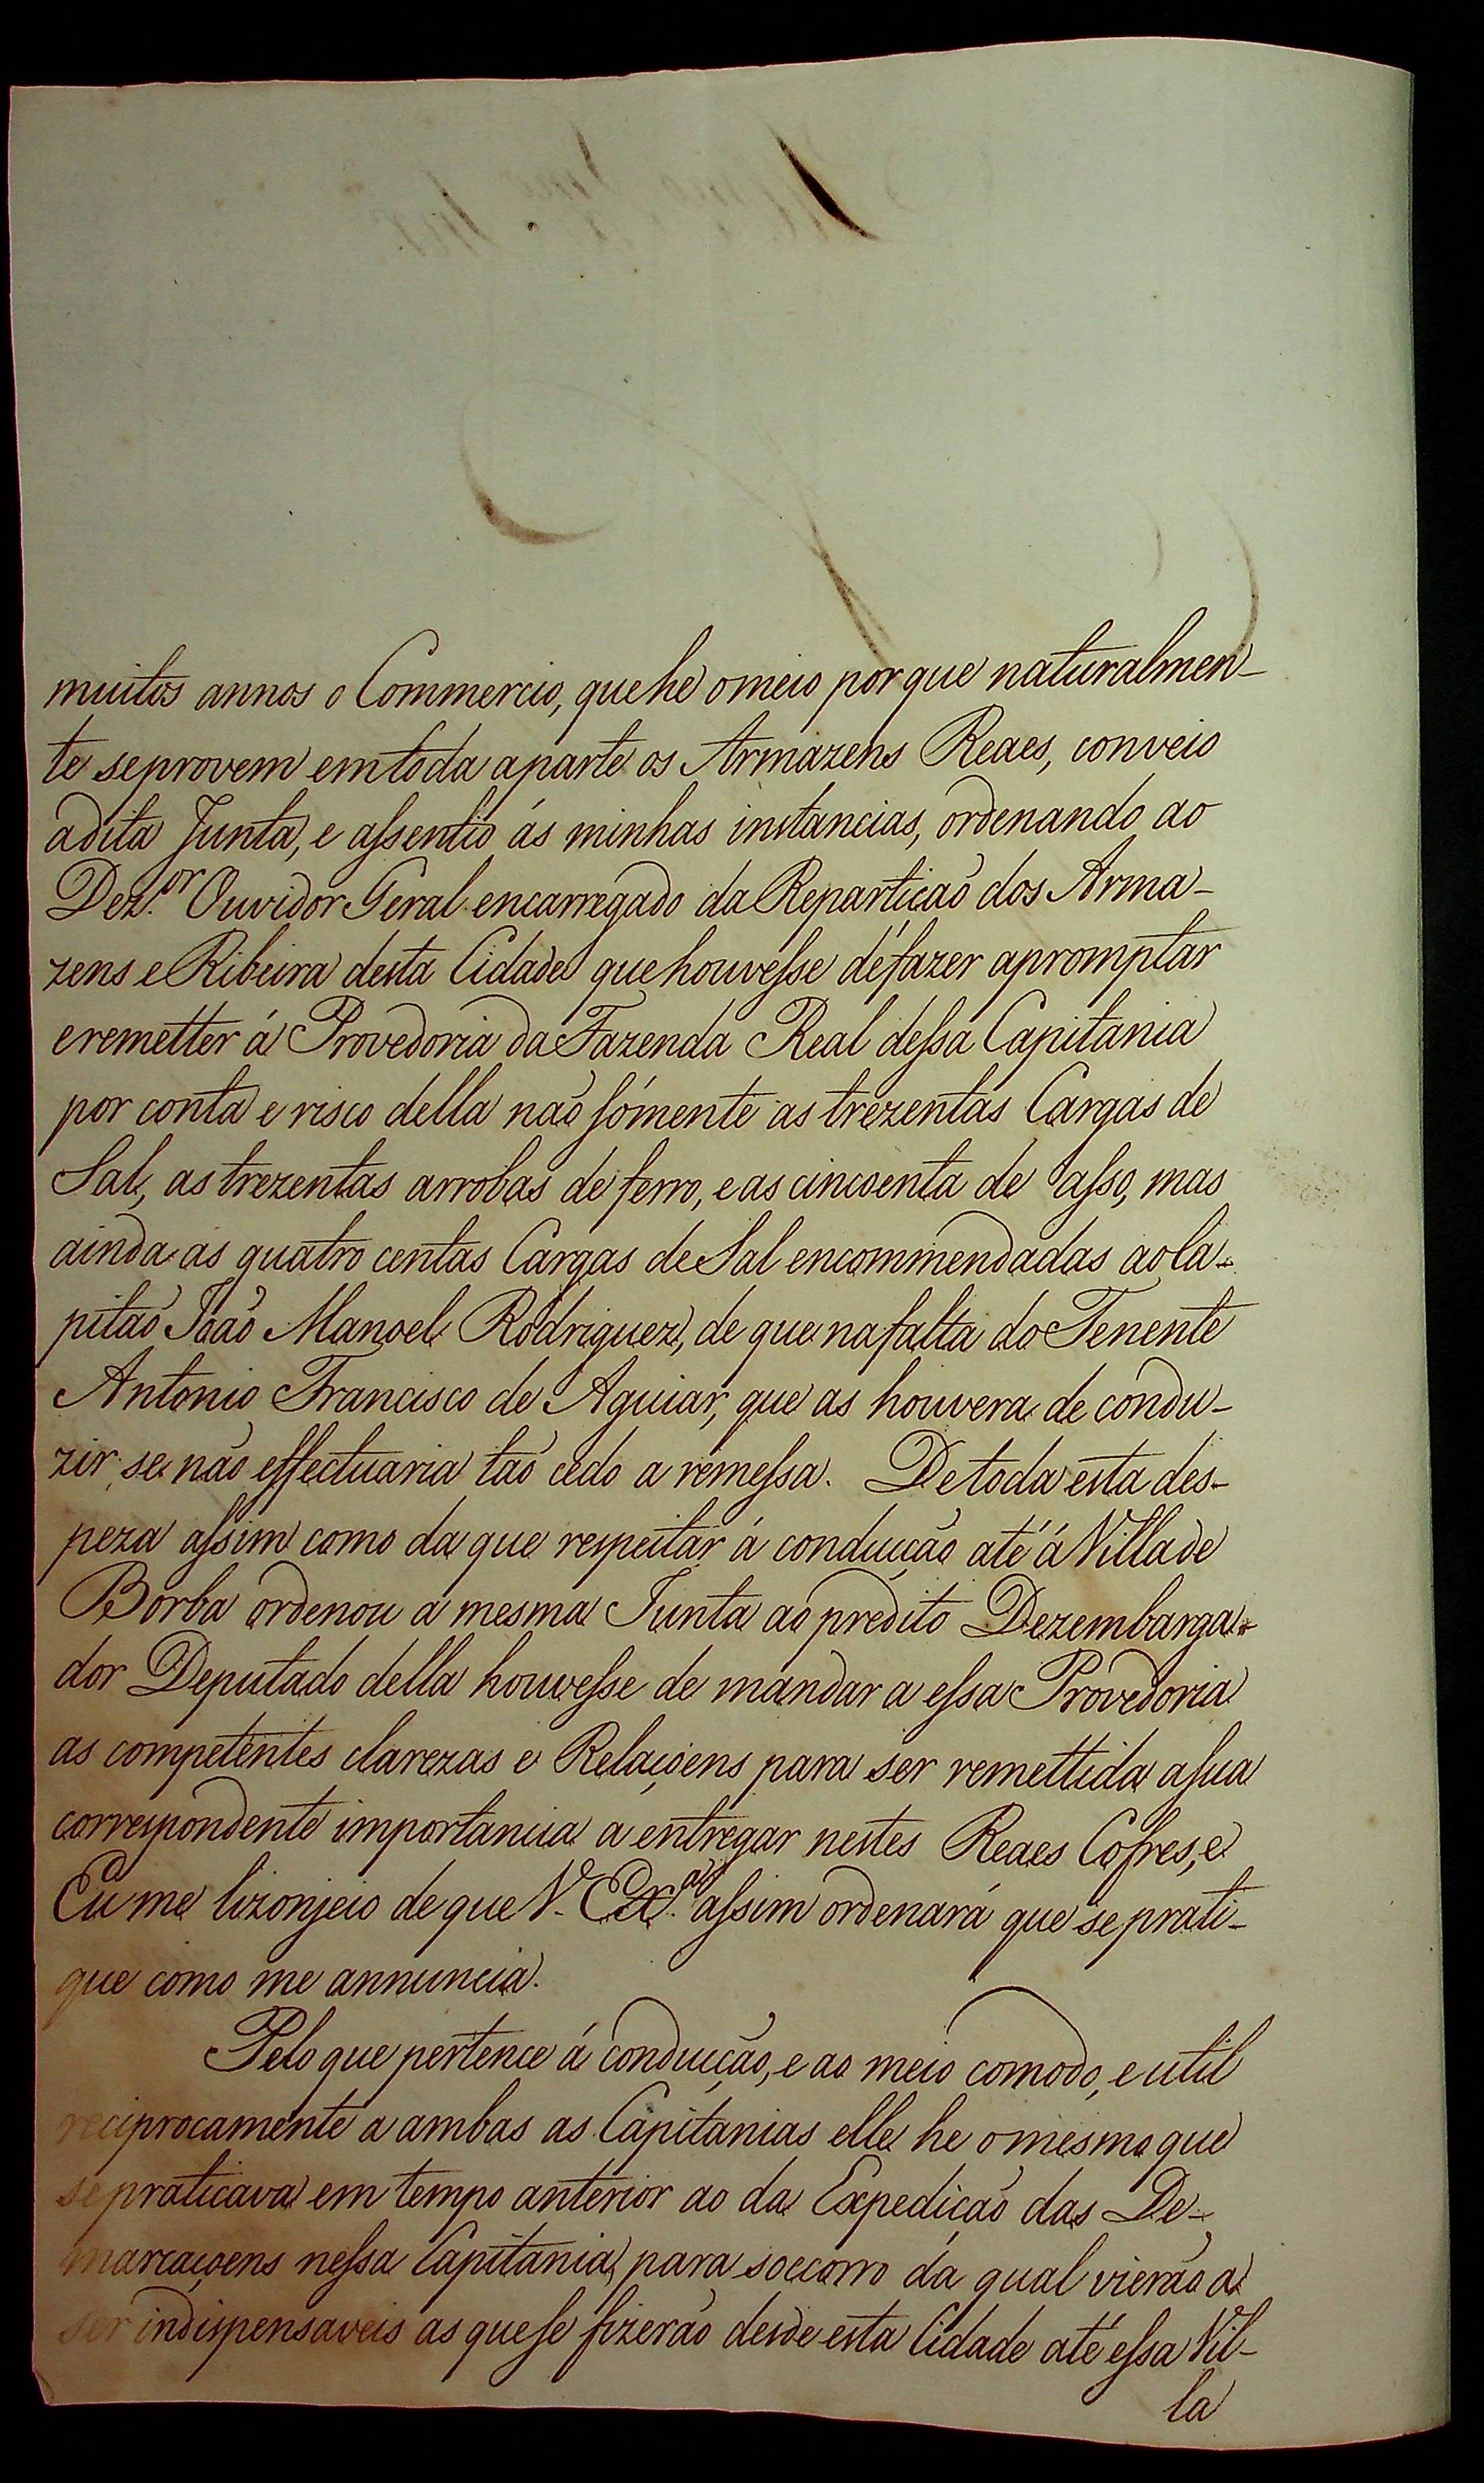 muitos annos o Commercio, que he o meio por que naturalmen-
te se provem em toda a parte os Armazens Reaes, conveio
a dita Junta, e assentio ás minhas instancias, ordenando ao
Dez.or Ouvidor Geral encarregado da Repartição dos Arma-
zens e Ribeira desta Cidade que houvesse de fazer apromptar
e remetter á Provedoria da Fazenda Real dessa Capitania
por conta e risco della não sómente as trezentas Cargas de
Sal, as trezentas arrobas de ferro, e as cincoenta de asso, mas
ainda as quatro centas Cargas de Sal encommendadas ao Ca-
pitão João Manoel Rodriguez, de que na falta do Tenente
Antonio Francisco de Aguiar, que as houvera de condu-
zir, se não effectuaria tão cedo a remessa. De toda esta des-
peza assim como da que respeitar á conducção até á Villa de
Borba ordenou a mesma Junta ao predito Dezembarga-
dor Deputado della houvesse de mandar a essa Provedoria
as competentes clarezas e Relaçoens para ser remettida a sua
correspondente importancia a entregar nestes Reaes Cofres, e
Eu me lizonjeio de que V. Ex.a assim ordenará que se prati-
que como me annuncia.
Pelo que pertence á conducção, e ao meio comodo, e util
reciprocamente a ambas as Capitanias elle he o mesmo que
se praticava em tempo anterior ao da Expedição das De-
marcaçoens nessa Capitania, para soccorro da qual vierão a
ser indispensaveis as que se fizerão desde esta Cidade até essa Vil-
la